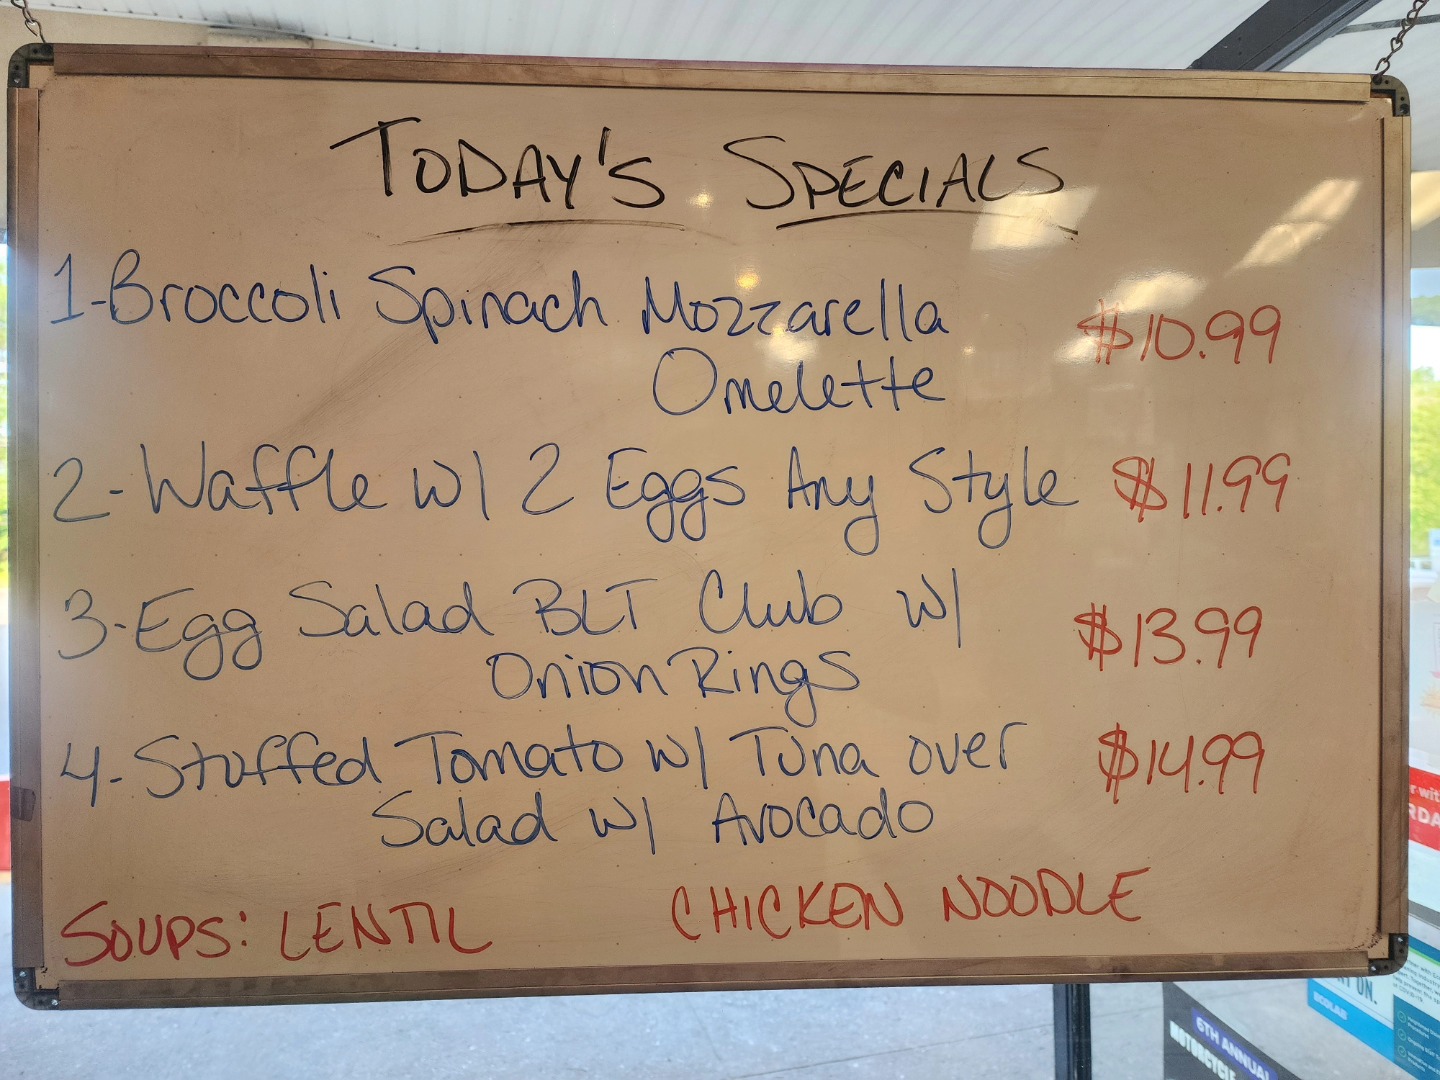 TODAY'S SPECIALS
1-Broccoli Spinach Mozzarella $10.99
Omelette
2-Waffle w/ 2 Eggs Any Style $11.99
3-Egg Salad BLT Club w/ $13.99
Onion Rings
4-Stuffed Tomato w/ Tuna over $14.99
Salad w/ Avocado
SOUPS: LENTIL CHICKEN NOODLE
6TH ANNUAL
MOTORCYCLE
ON.
ECOLAB